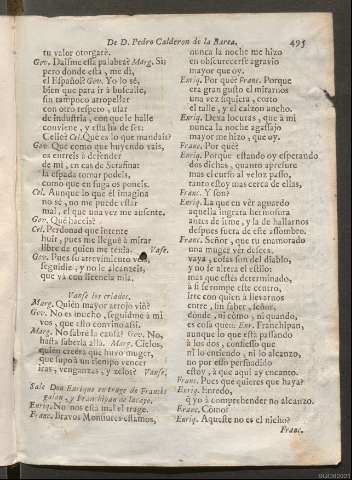 De D. Pedro Calderon de la Barca.
495
tu valor otorgare.
Gov. Daisme essa palabra? Marg. Si;
pero donde està, me dì,
el Español? Gov. Yo lo sè,
bien que para ir à buscalle,
sin tampoco atropellar
con otro respeto, usar
de industria, con que le halle
conviene, y esta ha de ser:
Celie? Cel. Què es lo que mandais?
Gov. Que como que huyendo vais,
os entreis à defender
de mi, en cas de Serafina:
la espada tomar podeis,
como que en fuga os poneis.
Cel. Aunque lo que èl imagina
no sè, no me puede estar
mal, el que una vez me ausente.
Gov. Què haceis?
Cel. Perdonad que intente
huir, pues me lleguè à mirar
libre de quien me tenia. Vase.
Gov. Pues su atrevimiento veis,
seguidle, y no le alcanzeis,
que và con licencia mia.
Vanse los criados.
Marg. Quièn mayor arrojo viò?
Gov. No es mucho, seguidme à mì
vos, que esto convino assi.
Marg. No sabrè la causa? Gov. No,
hasta saberla allà. Marg. Cielos,
quien creerà que huvo muger,
que supo à un tiempo vencer
iras, venganzas, y zelos? Vanse.
Sale Don Enrique en trage de Francès
galan, y Franchipan de lacayo.
Enriq. No nos està mal el trage.
Franc. Bravos Monsiures estamos,
nunca la noche me hizo
en obscurecerse agravio
mayor que oy.
Enriq. Por què? Franc. Porque
era gran gusto el mirarnos
una vez siquiera, corto
el talle, y el calzon ancho.
Enriq. Dexa locuras, que à mi
nunca la noche agassajo
mayor me hizo, que oy.
Franc. Por què?
Enriq. Porque estando oy esperando
dos dichas, quanto apresure
mas el curso al veloz passo,
tanto estoy mas cerca de ellas,
Franc. Y son?
Enriq. La que en vèr aguardo
aquella ingrata hermosura
antes de irme, y la de hallarnos
despues fuera de este assombro.
Franc. Señor, que tu enamorado
una muger vèr desees,
vaya, cosas son del diablo,
y no se altera el estilo:
mas que estès determinado,
à si se rompe este centro,
irte con quien à llevarnos
entre, sin saber, señor,
dònde, ni còmo, ni quando,
es cosa que:: Enr. Franchipan,
aunque lo que està passando
à los dos, confiesso que
ni lo entiendo, ni lo alcanzo,
no por esso persuadido
estoy, à que aqui ay encanto.
Franc. Pues què quieres que haya?
Enriq. Enredo,
q̃ yo à comprehender no alcanzo.
Franc. Còmo?
Enriq. Aqueste no es el nicho?
Franc.